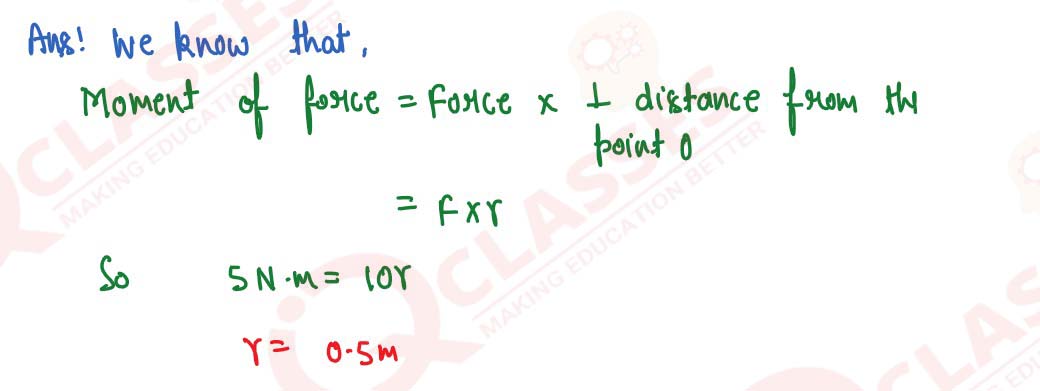 Ans! We know that,
Moment of force = Force x ⊥ distance from the
point O
= F x r
So 5 N.m = 10r
r = 0.5m
CLASSES
MAKING EDUCATION BETTER
CLASSES
MAKING EDUCATION BETTER